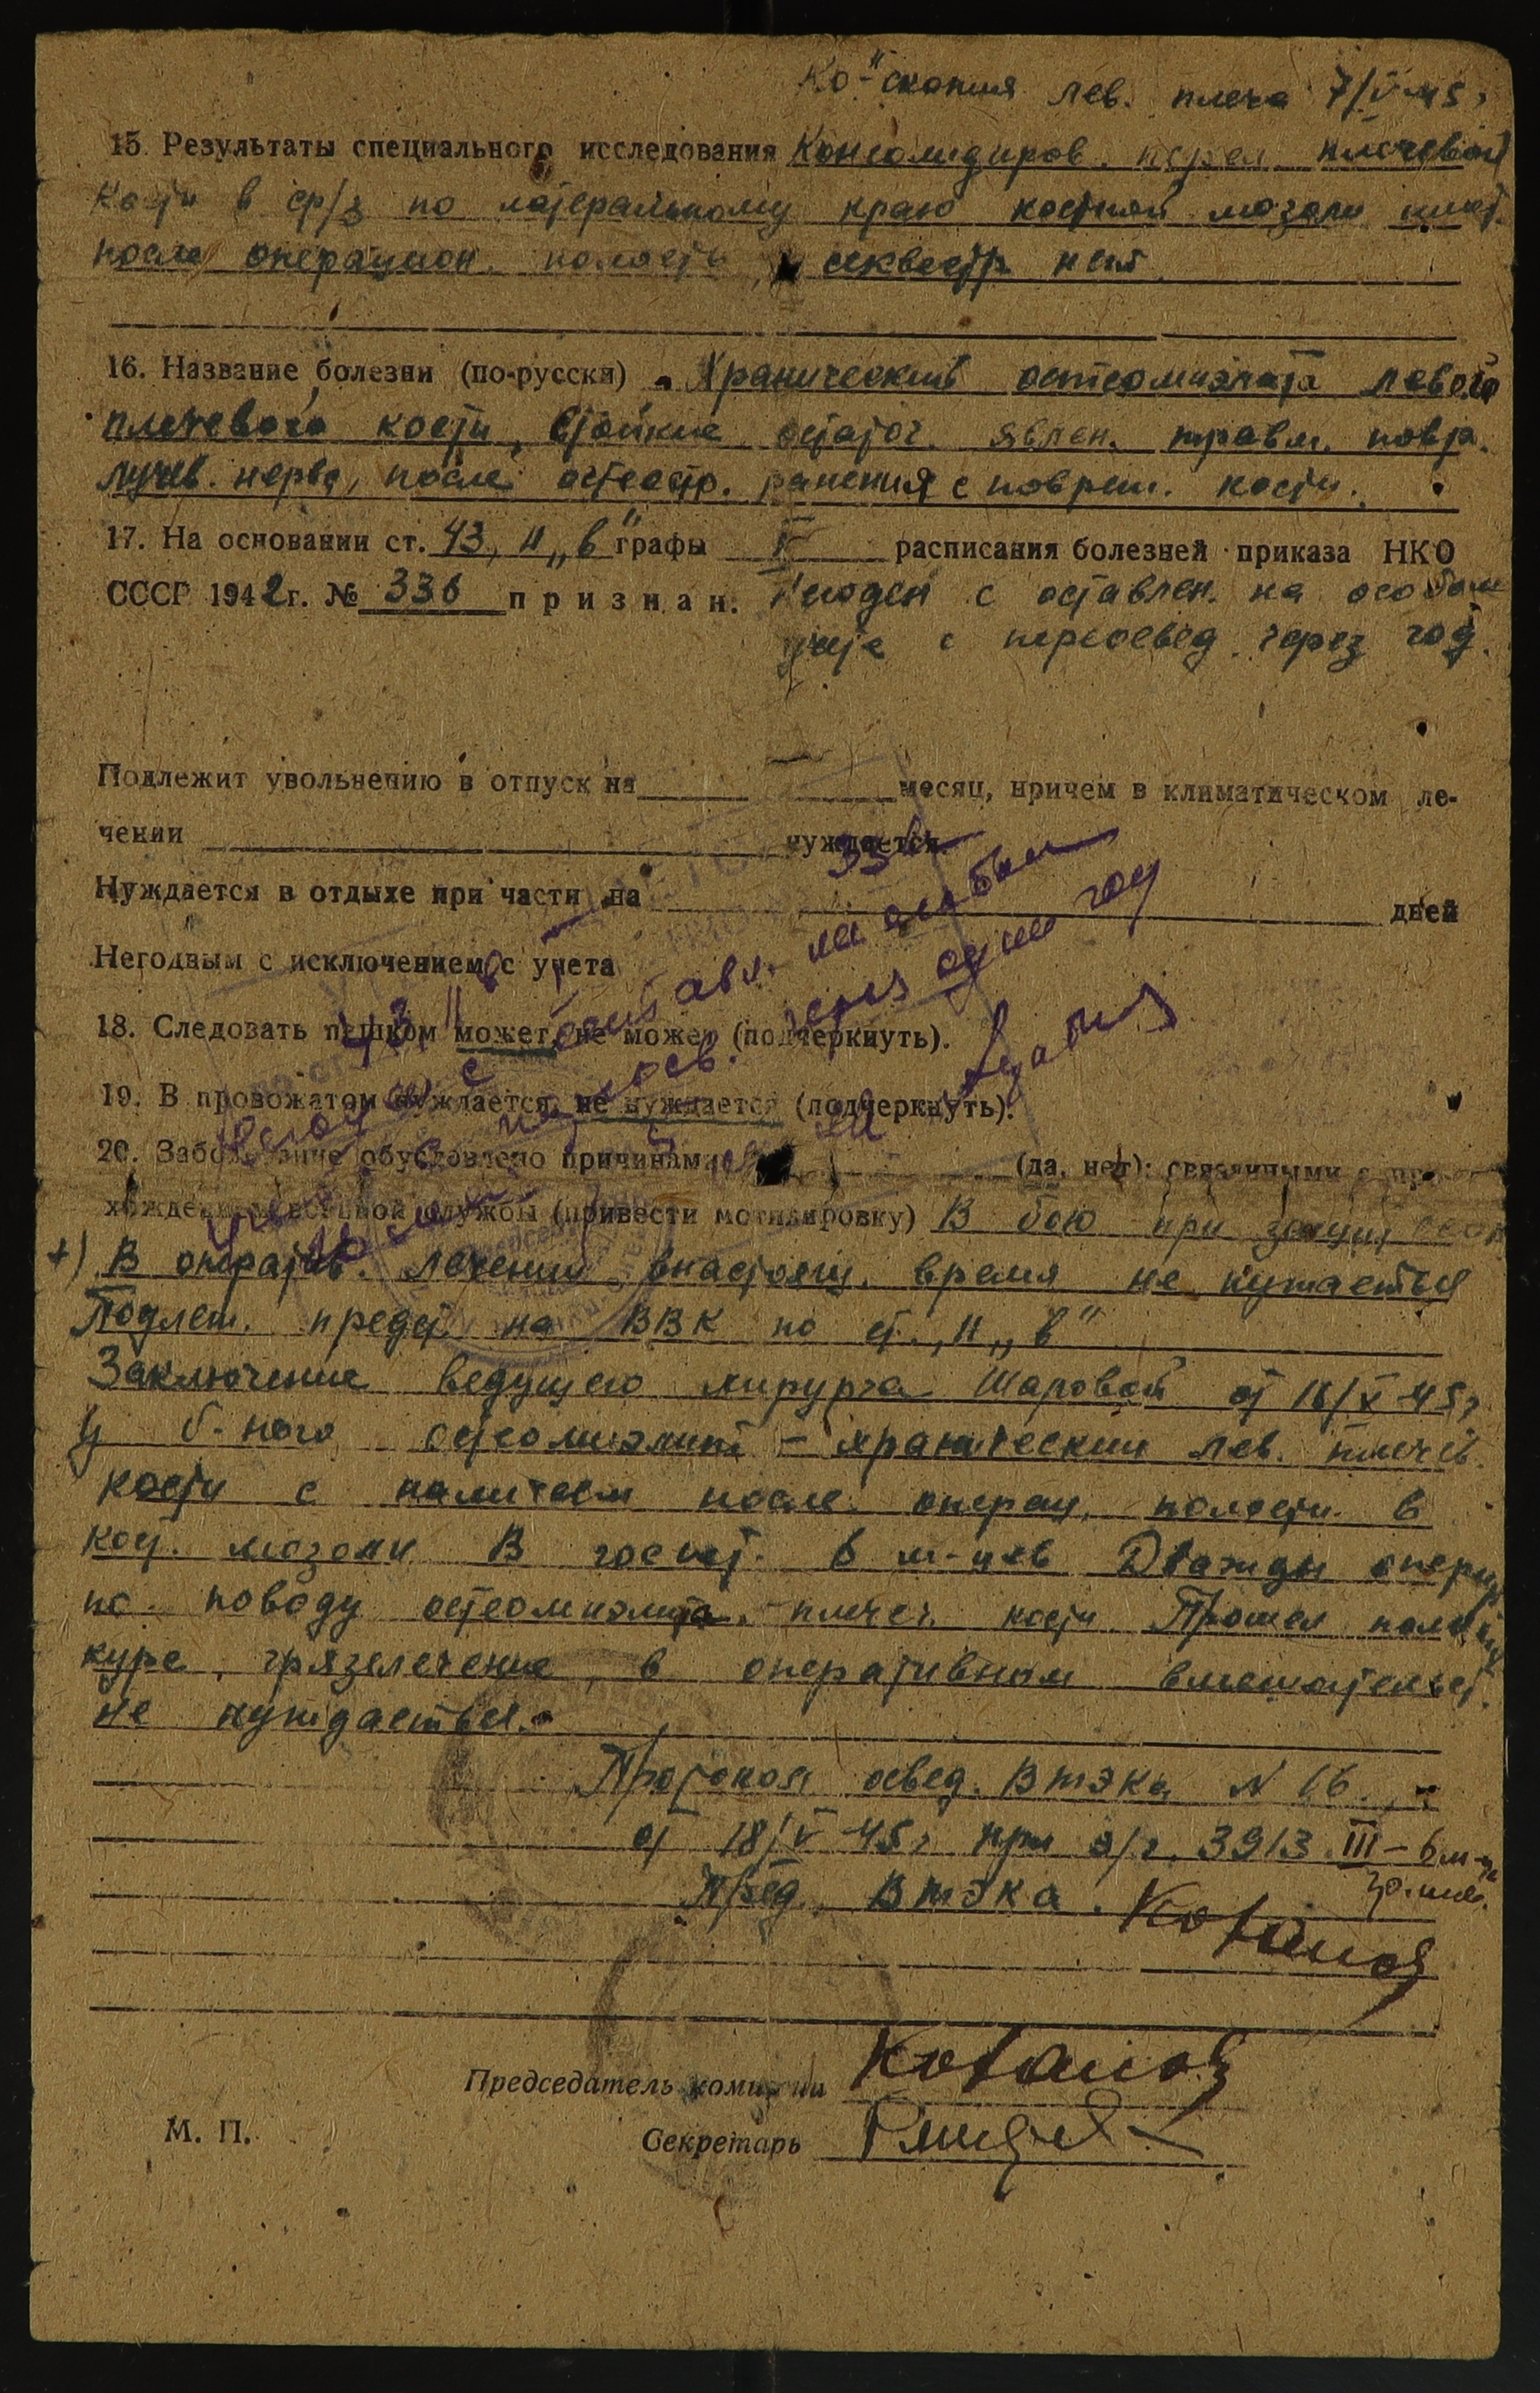 "скопия лев. плеча 7/V 45г
15. Результаты специального исследования Консолидиров. перел. плечевой
кости в ср/з по латеральному краю костной мозоли имеет.
после операцион. полость, секвестр. нет
16. Название болезни (по-русски) Хранический остеомиэлита левого
плечевого кости, стойкие остаточ. явлен. травм. повр.
лучев. нерва, после огнестр. ранения с повреж. кости.
17. На основании ст. 43, п „в" графы II расписания болезней приказа НКО
СССР 1942 г. № 336 признан. Негоден с оставлен. на особом
учете с переосвед. через год.
Подлежит увольнению в отпуск на месяц, причем в климатическом ле-
чении нуждается
Нуждается в отдыхе при части на дней
Негодным с исключением с учета
336
43 II в
негоден с оставл. на особом
с переосв. через один год
18. Следовать пешком может, не может (подчеркнуть).
19. В провожатом нуждается, не нуждается (подчеркнуть).
20. Заболевание обусловлено причинами (да, нет): связанными с про-
хождением военной службы (привести мотивировку) В бою при защит
+) В оператив. лечении внастоящ. время не нуждается
Подлеж. предст. на ВВК по ст., п „в"
Заключение ведущего хирурга Шаровой от 16/V 45г
У б-ного остеомиэлит - хранический лев. плечев.
кости с наличием после операц. полости в
кост. мозоли В госпит. 6 м-цев Дважды оперир
по поводу остеомиэлита. плечев. кости Прошел полный
курс, грязелечение, в оперативном вмешательст.
не нуждается.
Протокол освед. Втэка N 16.
от 18/V 45г при э/г. 3913 III - 6 м-
Пред. Втэка. Кованов
Председатель комиссии Кованов
М. П.
Секретарь